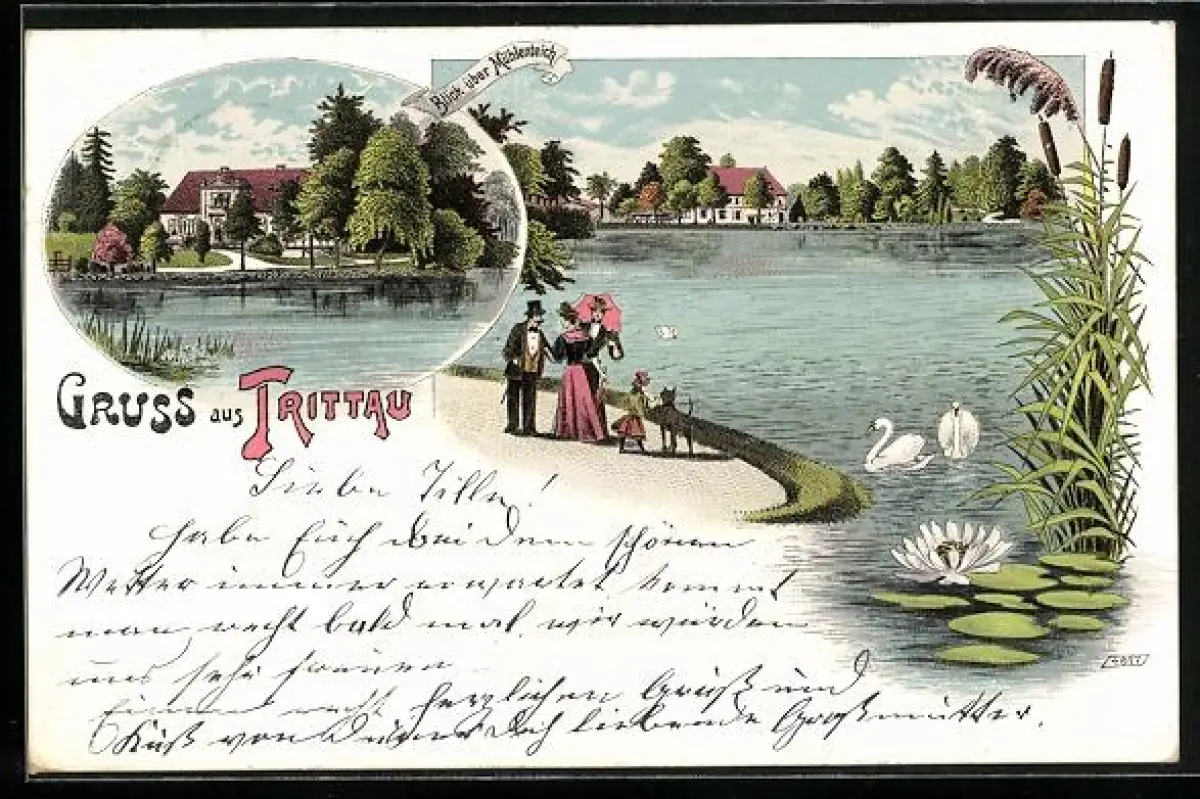 Blick über Mühlenteich
GRUSS aus TRITTAU
Liebe Tilly!
habe Euch bei dem schönen
Wetter immer erwartet kommt
man recht bald mal, wir würden
uns sehr freuen
Einen recht herzlichen Gruß und
Kuß von Deiner Dich liebende Großmutter.